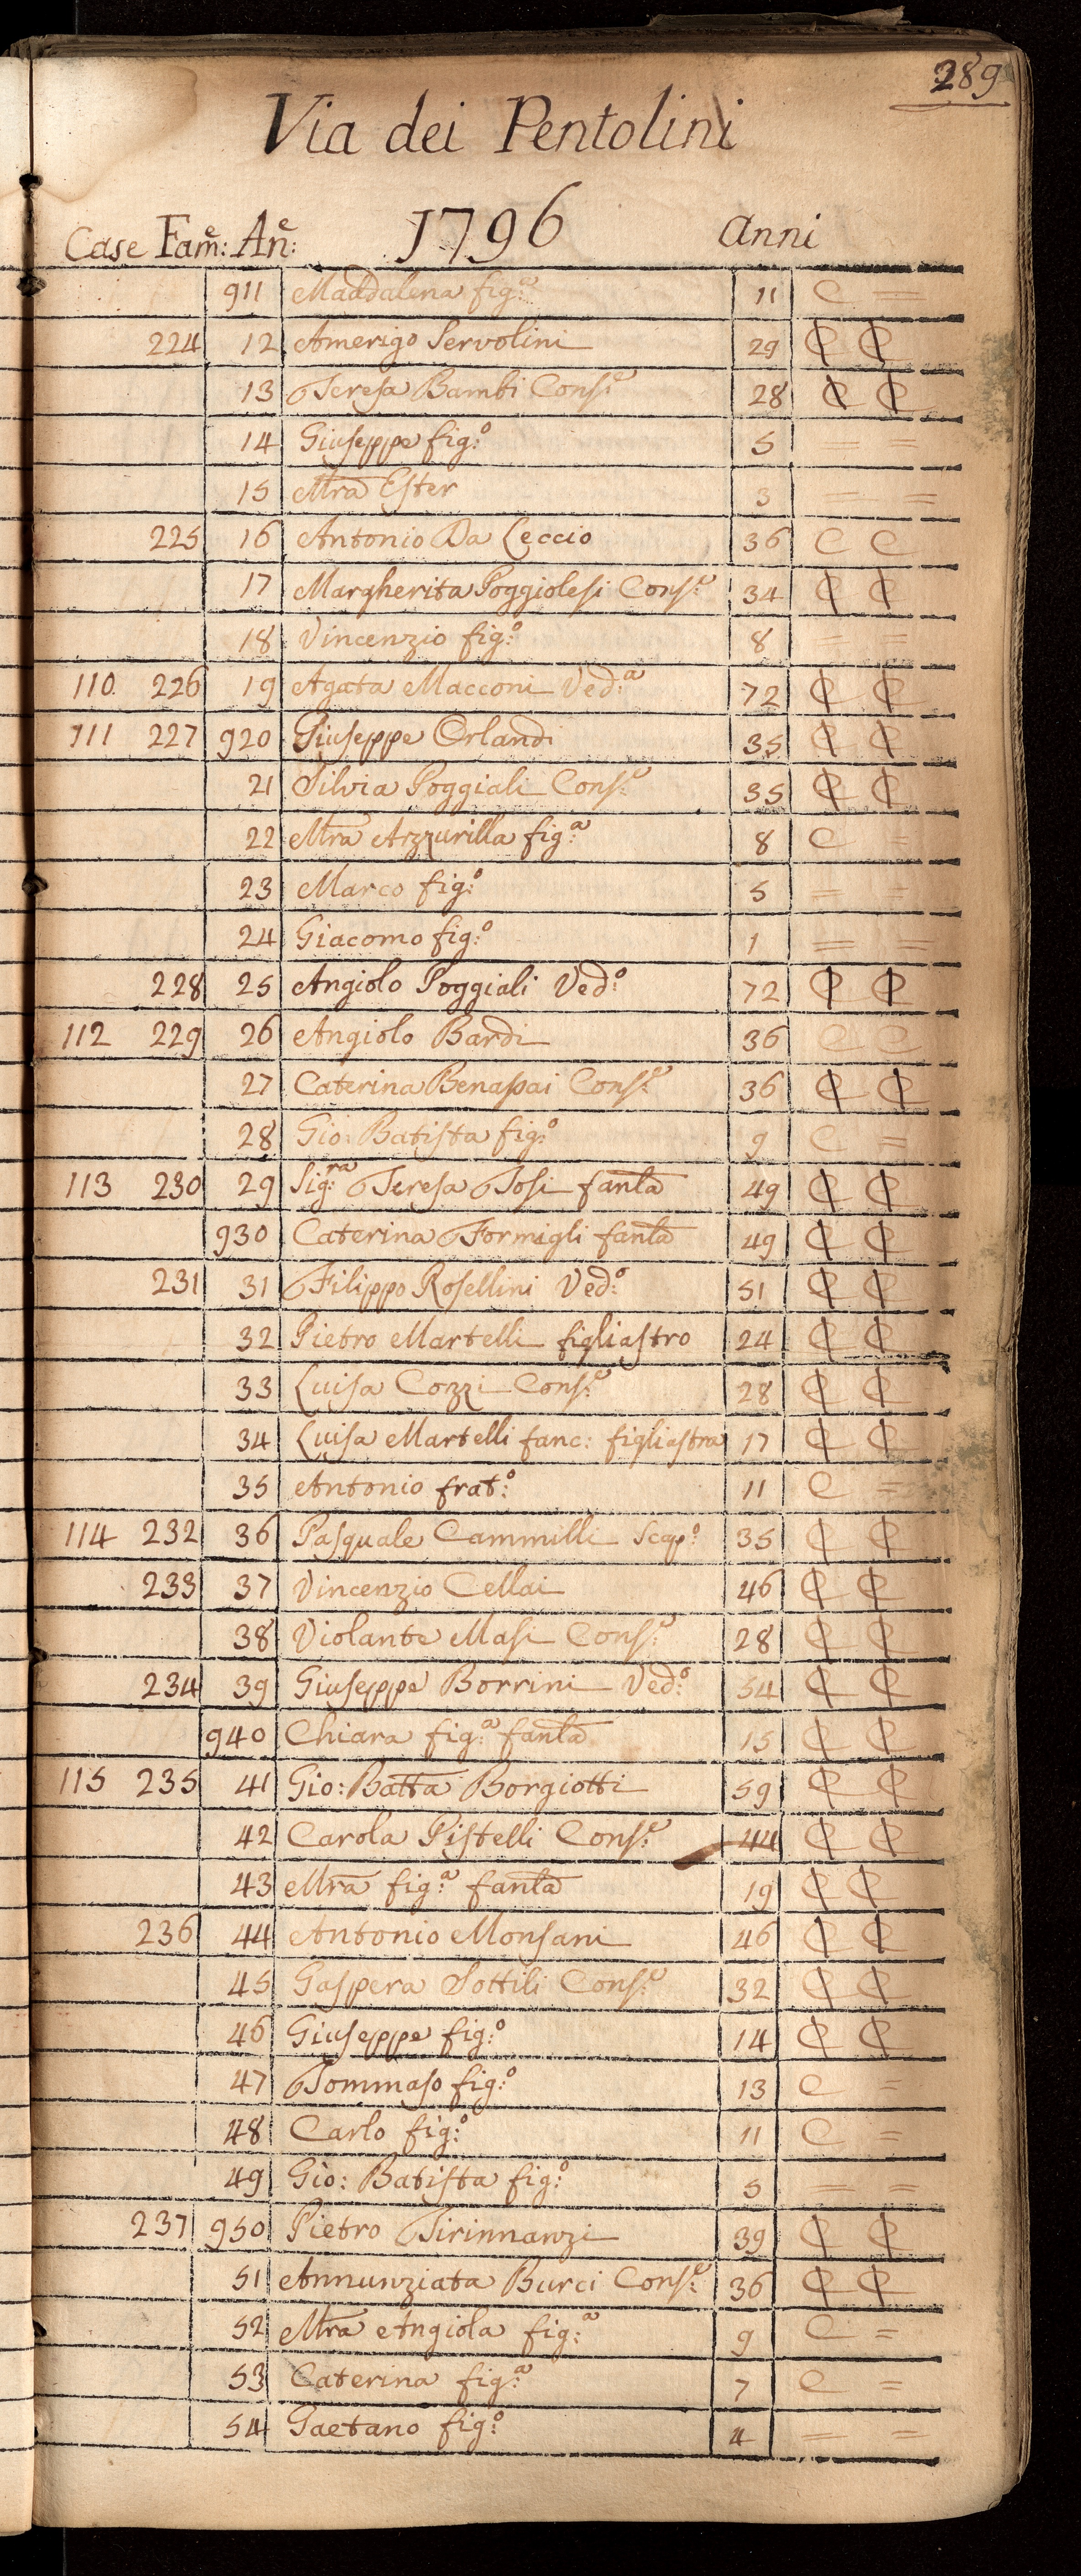 289
Via dei Pentolini
Case Fam:e An:e 1796 anni
911 Maddalena fig:a 11 C =
224 12 Amerigo Servolini 29 C C
13 Teresa Bambi Cons:e 28 C C
14 Giuseppe fig:o 5 = =
15 Mra Ester 3 = =
225 16 Antonio Da Leccio 36 C C
17 Margherita Poggiolesi Cons:e 34 C C
18 Vincenzio fig:o 8 = =
110 226 19 Agata Macconi Ved:a 72 C C
111 227 920 Giuseppe Orlandi 35 C C
21 Silvia Poggiali Cons:e 35 C C
22 Mra Azzurilla fig:a 8 C =
23 Marco fig:o 5 = =
24 Giacomo fig:o 1 = =
228 25 Angiolo Poggiali Ved:o 72 C C
112 229 26 Angiolo Bardi 36 C C
27 Caterina Benassai Cons:e 36 C C
28 Gio: Batista fig:o 9 C =
113 230 29 Sig:ra Teresa Tosi fanla 49 C C
930 Caterina Formigli fanla 49 C C
231 31 Filippo Rosellini Ved:o 51 C C
32 Pietro Martelli figliastro 24 C C
33 Luisa Cozzi Cons:e 28 C C
34 Luisa Martelli fanc: figliastra 17 C C
35 Antonio frat:o 11 C =
114 232 36 Pasquale Cammilli Scap:o 35 C C
233 37 Vincenzio Cellai 46 C C
38 Violante Masi Cons:e 28 C C
234 39 Giuseppe Borrini Ved:o 54 C C
940 Chiara fig:a fanla 15 C C
115 235 41 Gio: Batta Borgiotti 59 C C
42 Carola Pistelli Cons:e 44 C C
43 Mra fig:a fanla 19 C C
236 44 Antonio Monsani 46 C C
45 Gaspera Sottili Cons:e 32 C C
46 Giuseppe fig:o 14 C C
47 Tommaso fig:o 13 C =
48 Carlo fig:o 11 C =
49 Gio: Batista fig:o 5 = =
237 950 Pietro Tirinnanzi 39 C C
51 Annunziata Burci Cons:e 36 C C
52 Mra Angiola fig:a 9 C =
53 Caterina fig:a 7 C =
54 Gaetano fig:o 4 = =